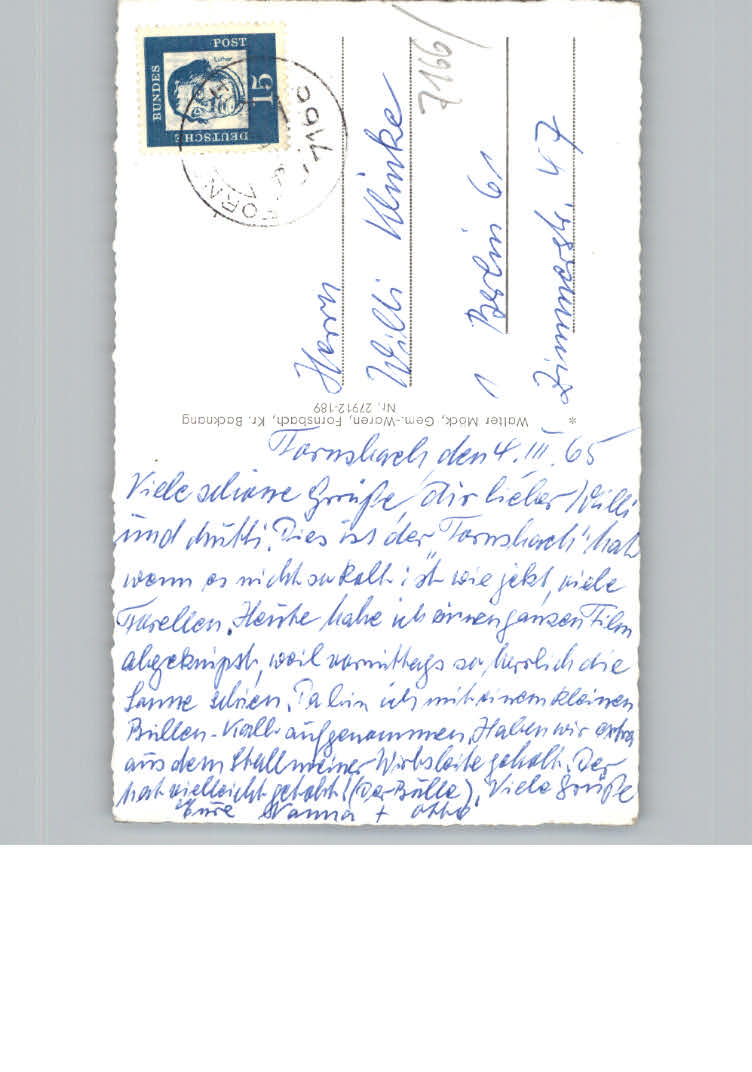 Fornsbach, den 4. III. 65
Viele schöne Grüße dir lieber Willi
und Mutti. Dies ist der "Fornsbach" hat
wenn es nicht so kalt ist wie jetzt, viele
Forellen. Heute habe ich einen ganzen Film
abgeknipst, weil vormittags so herrlich die
Sonne schien. Da bin ich mit einem kleinen
Bullen-Kalb aufgenommen. Haben wir extra
aus dem Stall meiner Wirtsleite geholt. Der
hat vielleicht getobt! (Der Bulle). Viele Grüße
Eure Nanna + Otto
Walter Möck, Gem.-Waren, Fornsbach, Kr. Backnang
Nr. 27912-189
*
DEUTSCHE
BUNDES
POST
15
Luther
7166
7166
Herrn
Willi Klinke
1 Berlin 61
Zimmerstr. 47